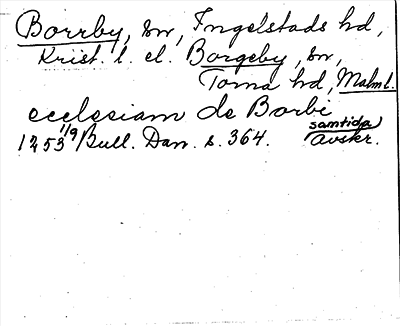 Borrby, sn, Ingelstads hd,
Krist. l. el. Borgeby, sn,
Torna hd, Malm l.
ecclesiam de Borbi
1253 1/9 Bull. Dan. s. 364. samtida
avskr.